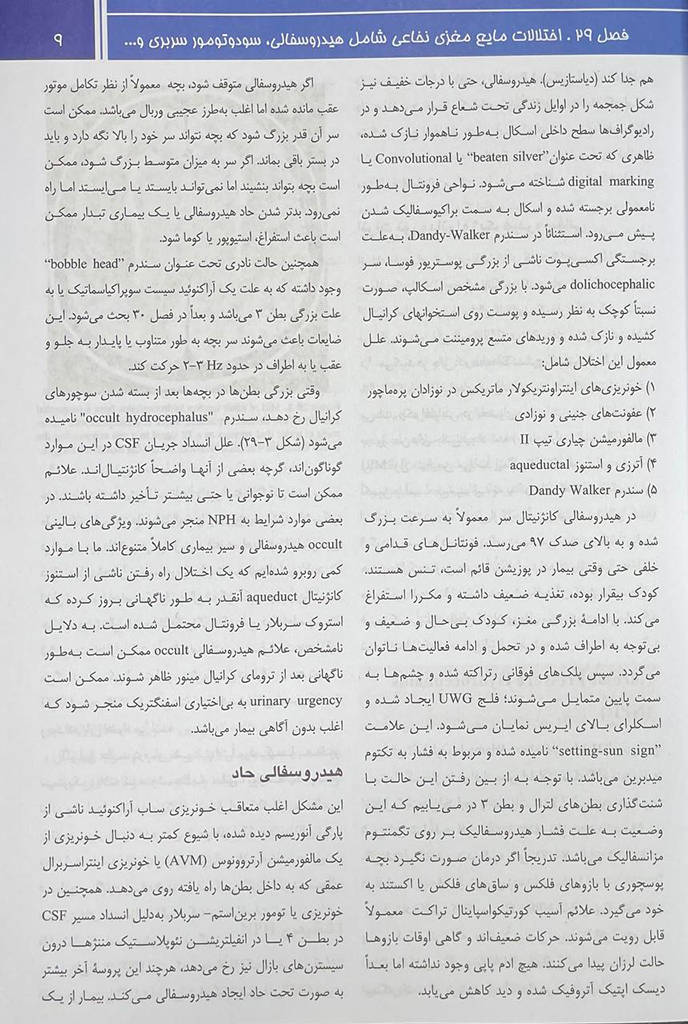 فصل ۲۹ . اختلالات مایع مغزی نخاعی شامل هیدروسفالی، سودوتومور سربری و...
۹
هم جدا کند (دیاستازیس). هیدروسفالی، حتی با درجات خفیف نیز
شکل جمجمه را در اوایل زندگی تحت شعاع قرار می‌دهد و در
رادیوگراف‌ها سطح داخلی اسکال به‌طور ناهموار نازک شده،
ظاهری که تحت عنوان”beaten silver“ یا Convolutional یا
digital marking شناخته می‌شود. نواحی فرونتال به‌طور
نامعمولی برجسته شده و اسکال به سمت براکیوسفالیک شدن
پیش می‌رود. استثنائاً در سندرم Dandy-Walker، به‌علت
برجستگی اکسی‌پوت ناشی از بزرگی پوستریور فوسا، سر
dolichocephalic می‌شود. با بزرگی مشخص اسکالپ، صورت
نسبتاً کوچک به نظر رسیده و پوست روی استخوانهای کرانیال
کشیده و نازک شده و وریدهای متسع پرومیننت می‌شوند. علل
معمول این اختلال شامل:
۱) خونریزی‌های اینتراونتریکولار ماتریکس در نوزادان پره‌ماچور
۲) عفونت‌های جنینی و نوزادی
۳) مالفورمیشن چیاری تیپ II
۴) آترزی و استنوز aqueductal
۵) سندرم Dandy Walker
در هیدروسفالی کانژنیتال سر معمولاً به سرعت بزرگ
شده و به بالای صدک ۹۷ می‌رسد. فونتانل‌های قدامی و
خلفی حتی وقتی بیمار در پوزیشن قائم است، تنس هستند.
کودک بیقرار بوده، تغذیه ضعیف داشته و مکررا استفراغ
می‌کند. با ادامهٔ بزرگی مغز، کودک بی‌حال و ضعیف و
بی‌توجه به اطراف شده و در تحمل و ادامه فعالیت‌ها ناتوان
می‌گردد. سپس پلک‌های فوقانی رتراکته شده و چشم‌ها به
سمت پایین متمایل می‌شوند؛ فلج UWG ایجاد شده و
اسکلرای بالای ایریس نمایان می‌شود. این علامت
”setting-sun sign“ نامیده شده و مربوط به فشار به تکتوم
میدبرین می‌باشد. با توجه به از بین رفتن این حالت با
شنت‌گذاری بطن‌های لترال و بطن ۳ در می‌یابیم که این
وضعیت به علت فشار هیدروسفالیک بر روی تگمنتوم
مزانسفالیک می‌باشد. تدریجاً اگر درمان صورت نگیرد بچه
پوسچوری با بازوهای فلکس و ساق‌های فلکس یا اکستند به
خود می‌گیرد. علائم آسیب کورتیکواسپاینال تراکت معمولاً
قابل رویت می‌شوند. حرکات ضعیف‌اند و گاهی اوقات بازوها
حالت لرزان پیدا می‌کنند. هیچ ادم پاپی وجود نداشته اما بعداً
دیسک اپتیک آتروفیک شده و دید کاهش می‌یابد.
اگر هیدروسفالی متوقف شود، بچه معمولاً از نظر تکامل موتور
عقب مانده شده اما اغلب به‌طرز عجیبی وربال می‌باشد. ممکن است
سر آن قدر بزرگ شود که بچه نتواند سر خود را بالا نگه دارد و باید
در بستر باقی بماند. اگر سر به میزان متوسط بزرگ شود، ممکن
است بچه بتواند بنشیند اما نمی‌تواند بایستد یا می‌ایستد اما راه
نمی‌رود. بدتر شدن حاد هیدروسفالی یا یک بیماری تبدار ممکن
است باعث استفراغ، استیوپور یا کوما شود.
همچنین حالت نادری تحت عنوان سندرم ”bobble head“
وجود داشته که به علت یک آراکنوئید سیست سوپراکیاسماتیک یا به
علت بزرگی بطن ۳ می‌باشد و بعداً در فصل ۳۰ بحث می‌شود. این
ضایعات باعث می‌شوند سر بچه به طور متناوب یا پایدار به جلو و
عقب یا به اطراف در حدود ۲-۳ Hz حرکت کند.
وقتی بزرگی بطن‌ها در بچه‌ها بعد از بسته شدن سوچورهای
کرانیال رخ دهد، سندرم "occult hydrocephalus" نامیده
می‌شود (شکل ۳-۲۹). علل انسداد جریان CSF در این موارد
گوناگون‌اند، گرچه بعضی از آنها واضحاً کانژنتیال‌اند. علائم
ممکن است تا نوجوانی یا حتی بیشتر تأخیر داشته باشند. در
بعضی موارد شرایط به NPH منجر می‌شوند. ویژگی‌های بالینی
occult هیدروسفالی و سیر بیماری کاملاً متنوع‌اند. ما با موارد
کمی روبرو شده‌ایم که یک اختلال راه رفتن ناشی از استنوز
کانژنیتال aqueduct آنقدر به طور ناگهانی بروز کرده که
استروک سربلار یا فرونتال محتمل شده است. به دلایل
نامشخص، علائم هیدروسفالی occult ممکن است به‌طور
ناگهانی بعد از ترومای کرانیال مینور ظاهر شوند. ممکن است
urinary urgency به بی‌اختیاری اسفنگتریک منجر شود که
اغلب بدون آگاهی بیمار می‌باشد.
هیدروسفالی حاد
این مشکل اغلب متعاقب خونریزی ساب آراکنوئید ناشی از
پارگی آنوریسم دیده شده، با شیوع کمتر به دنبال خونریزی از
یک مالفورمیشن آرتریوونوس (AVM) یا خونریزی اینتراسربرال
عمقی که به داخل بطن‌ها راه یافته روی می‌دهد. همچنین در
خونریزی یا تومور برین‌استم- سربلار به‌دلیل انسداد مسیر CSF
در بطن ۴ یا در انفیلتریشن نئوپلاستیک مننژها درون
سیسترن‌های بازال نیز رخ می‌دهد، هرچند این پروسهٔ آخر بیشتر
به صورت تحت حاد ایجاد هیدروسفالی می‌کند. بیمار از یک